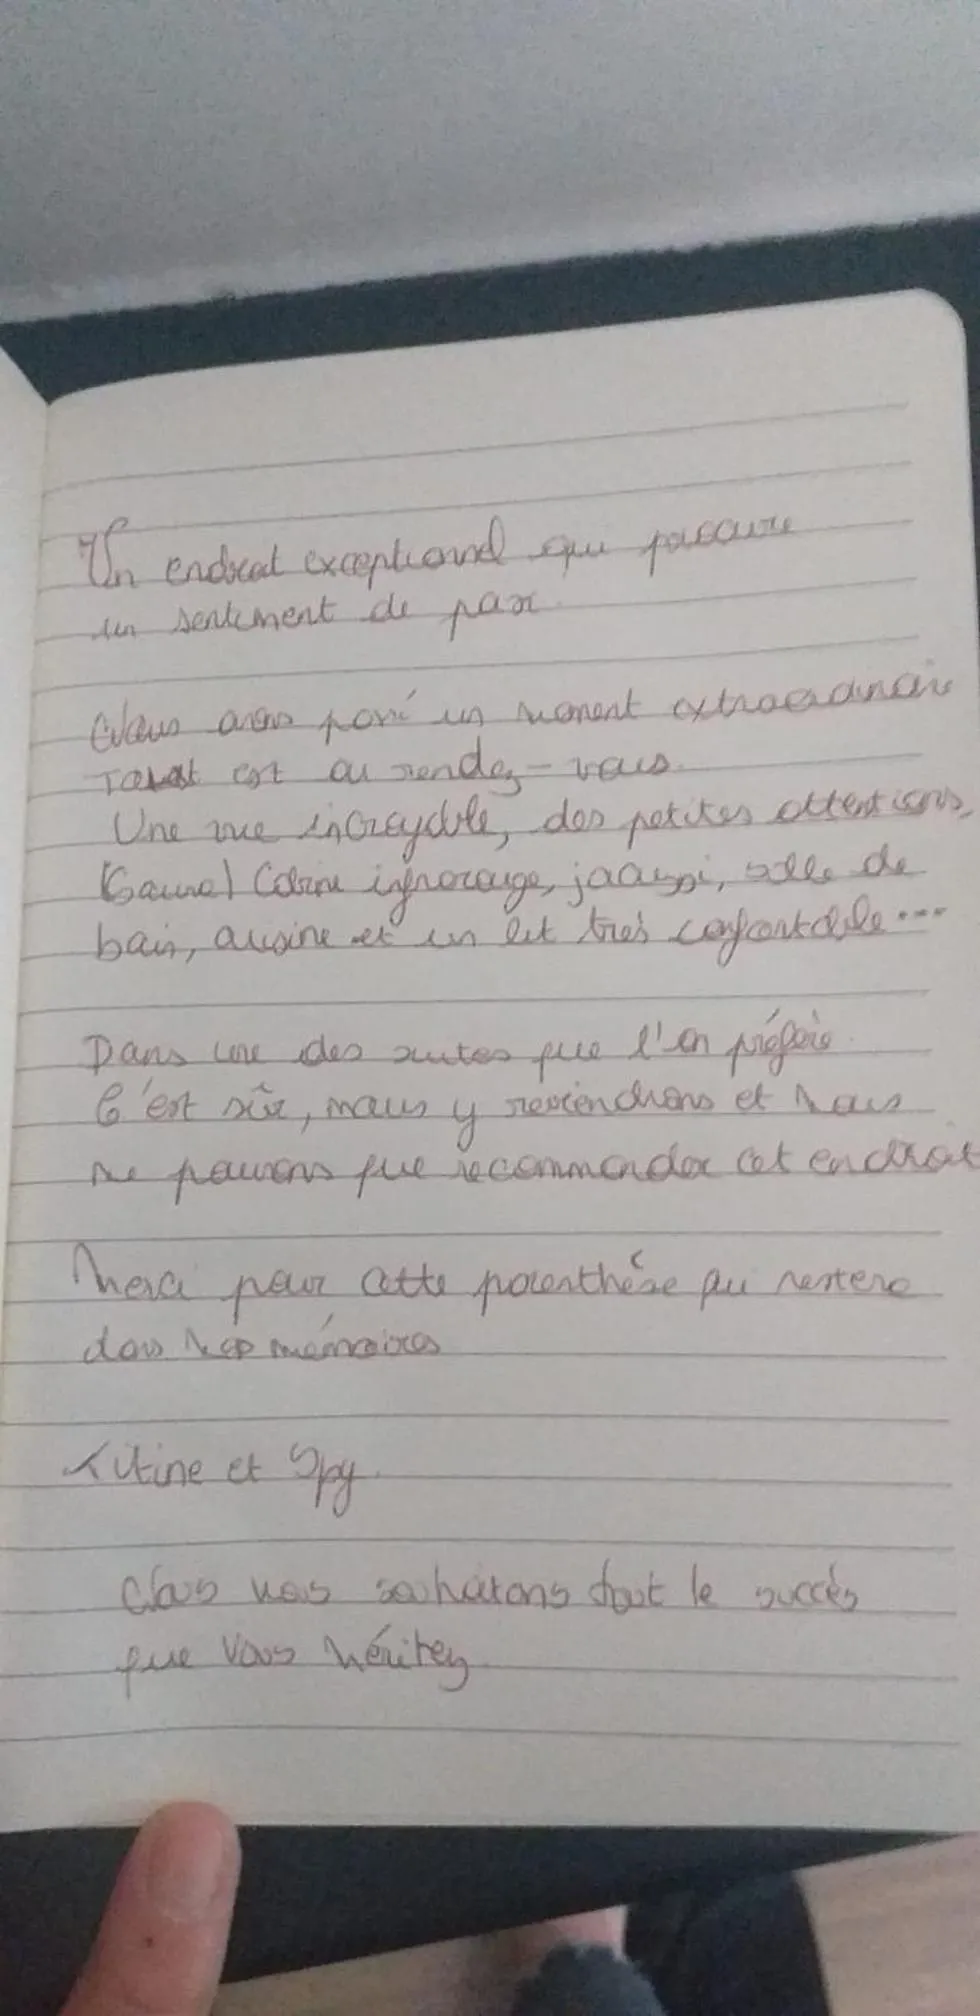 Un endroit exceptionnel qui procure
un sentiment de paix.
Nous avons passé un moment extraordinaire
Tout est au rendez-vous.
Une vue incroyable, des petites attentions,
(Sauna) Cabine infrarouge, jacuzzi, salle de
bain, cuisine et un lit très confortable...
Dans une des suites que l'on préfère
C'est sûr, nous y reviendrons et nous
ne pouvons que recommander cet endroit
Merci pour cette parenthèse qui restera
dans nos mémoires
Titine et Spy.
Nous vous souhaitons tout le succès
que vous méritez.